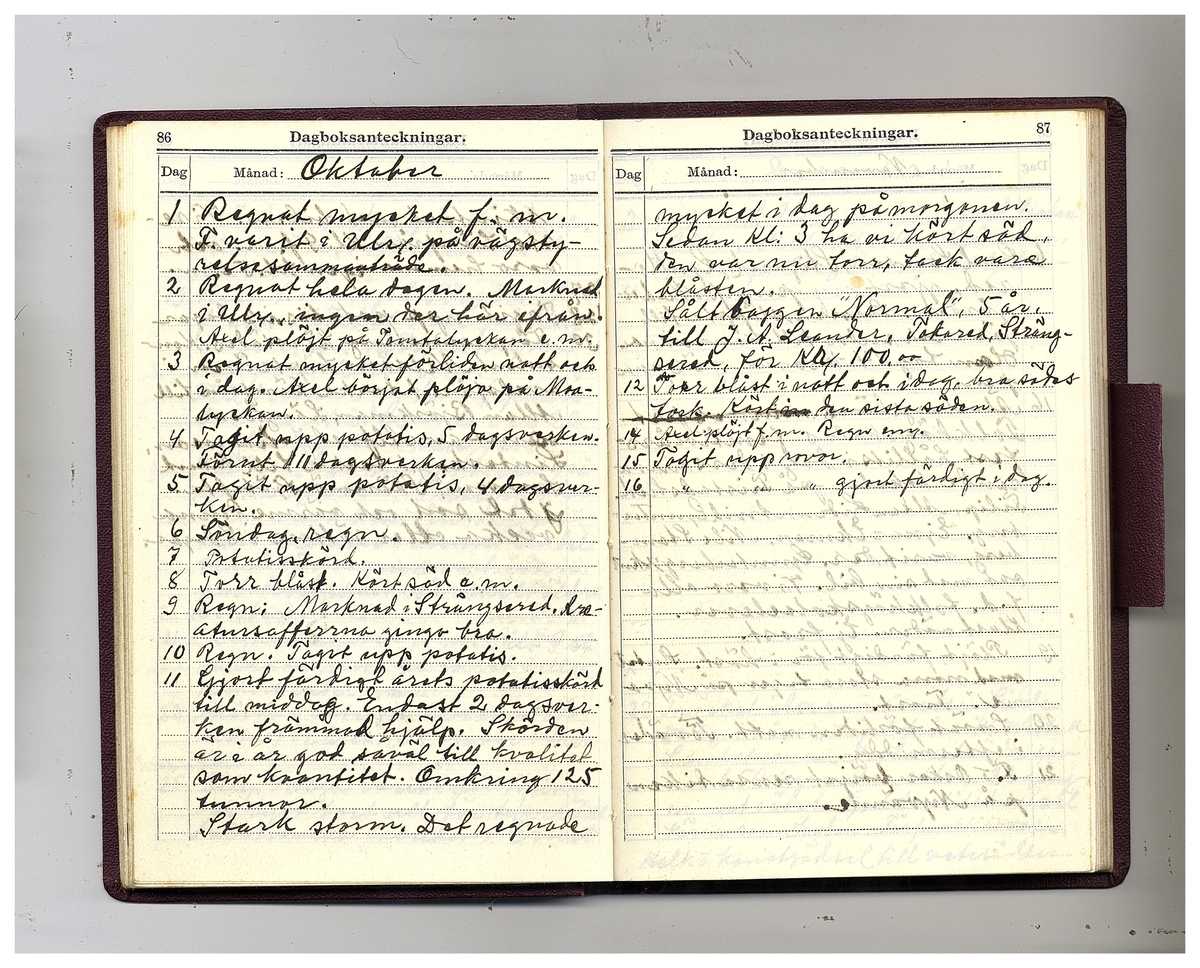 86
Dagboksanteckningar.
Dag
Månad: Oktober
1 Regnat mycket f. m.
F. varit i Ulr. på vägsty-
relsesammanträde.
2 Regnat hela dagen. Marknad
i Ulr., ingen der här ifrån.
Axel plöjt på Tomtalyckan e. m.
3 Regnat mycket förliden natt och
i dag. Axel börjat plöja på Moa-
lyckan.
4 Taget upp potatis, 5 dagsverken.
Förut 11 dagsverken.
5 Taget upp potatis, 4 dagsver-
ken.
6 Söndag, regn.
7 Potatisskörd.
8 Torr blåst. Kört säd e. m.
9 Regn; Marknad i Strängsered. Kre-
atursafferrna gingo bra.
10 Regn. Taget upp potatis.
11 Gjort färdigt årets potatisskörd
till middag. Endast 2 dagsver-
ken främmad hjälp. Skörden
är i år god såväl till kvalitet
som kvantitet. Omkring 125
tunnor.
Stark storm. Det regnade
87
Dagboksanteckningar.
Dag
Månad:
mycket i dag på morgonen.
Sedan kl: 3 ha vi kört säd,
den var nu torr, tack vare
blåsten.
Sålt baggen "Normal", 5 år,
till J. A. Leander, Tokared, Sträng-
sered, för Kr. 100,00
12 Torr blåst i natt och i dag, bra sädes
tork. Kört in den sista säden.
14 Axel plöjt f. m. Regn em.
15 Taget upp rovor.
16 " " " gjort färdigt i dag.